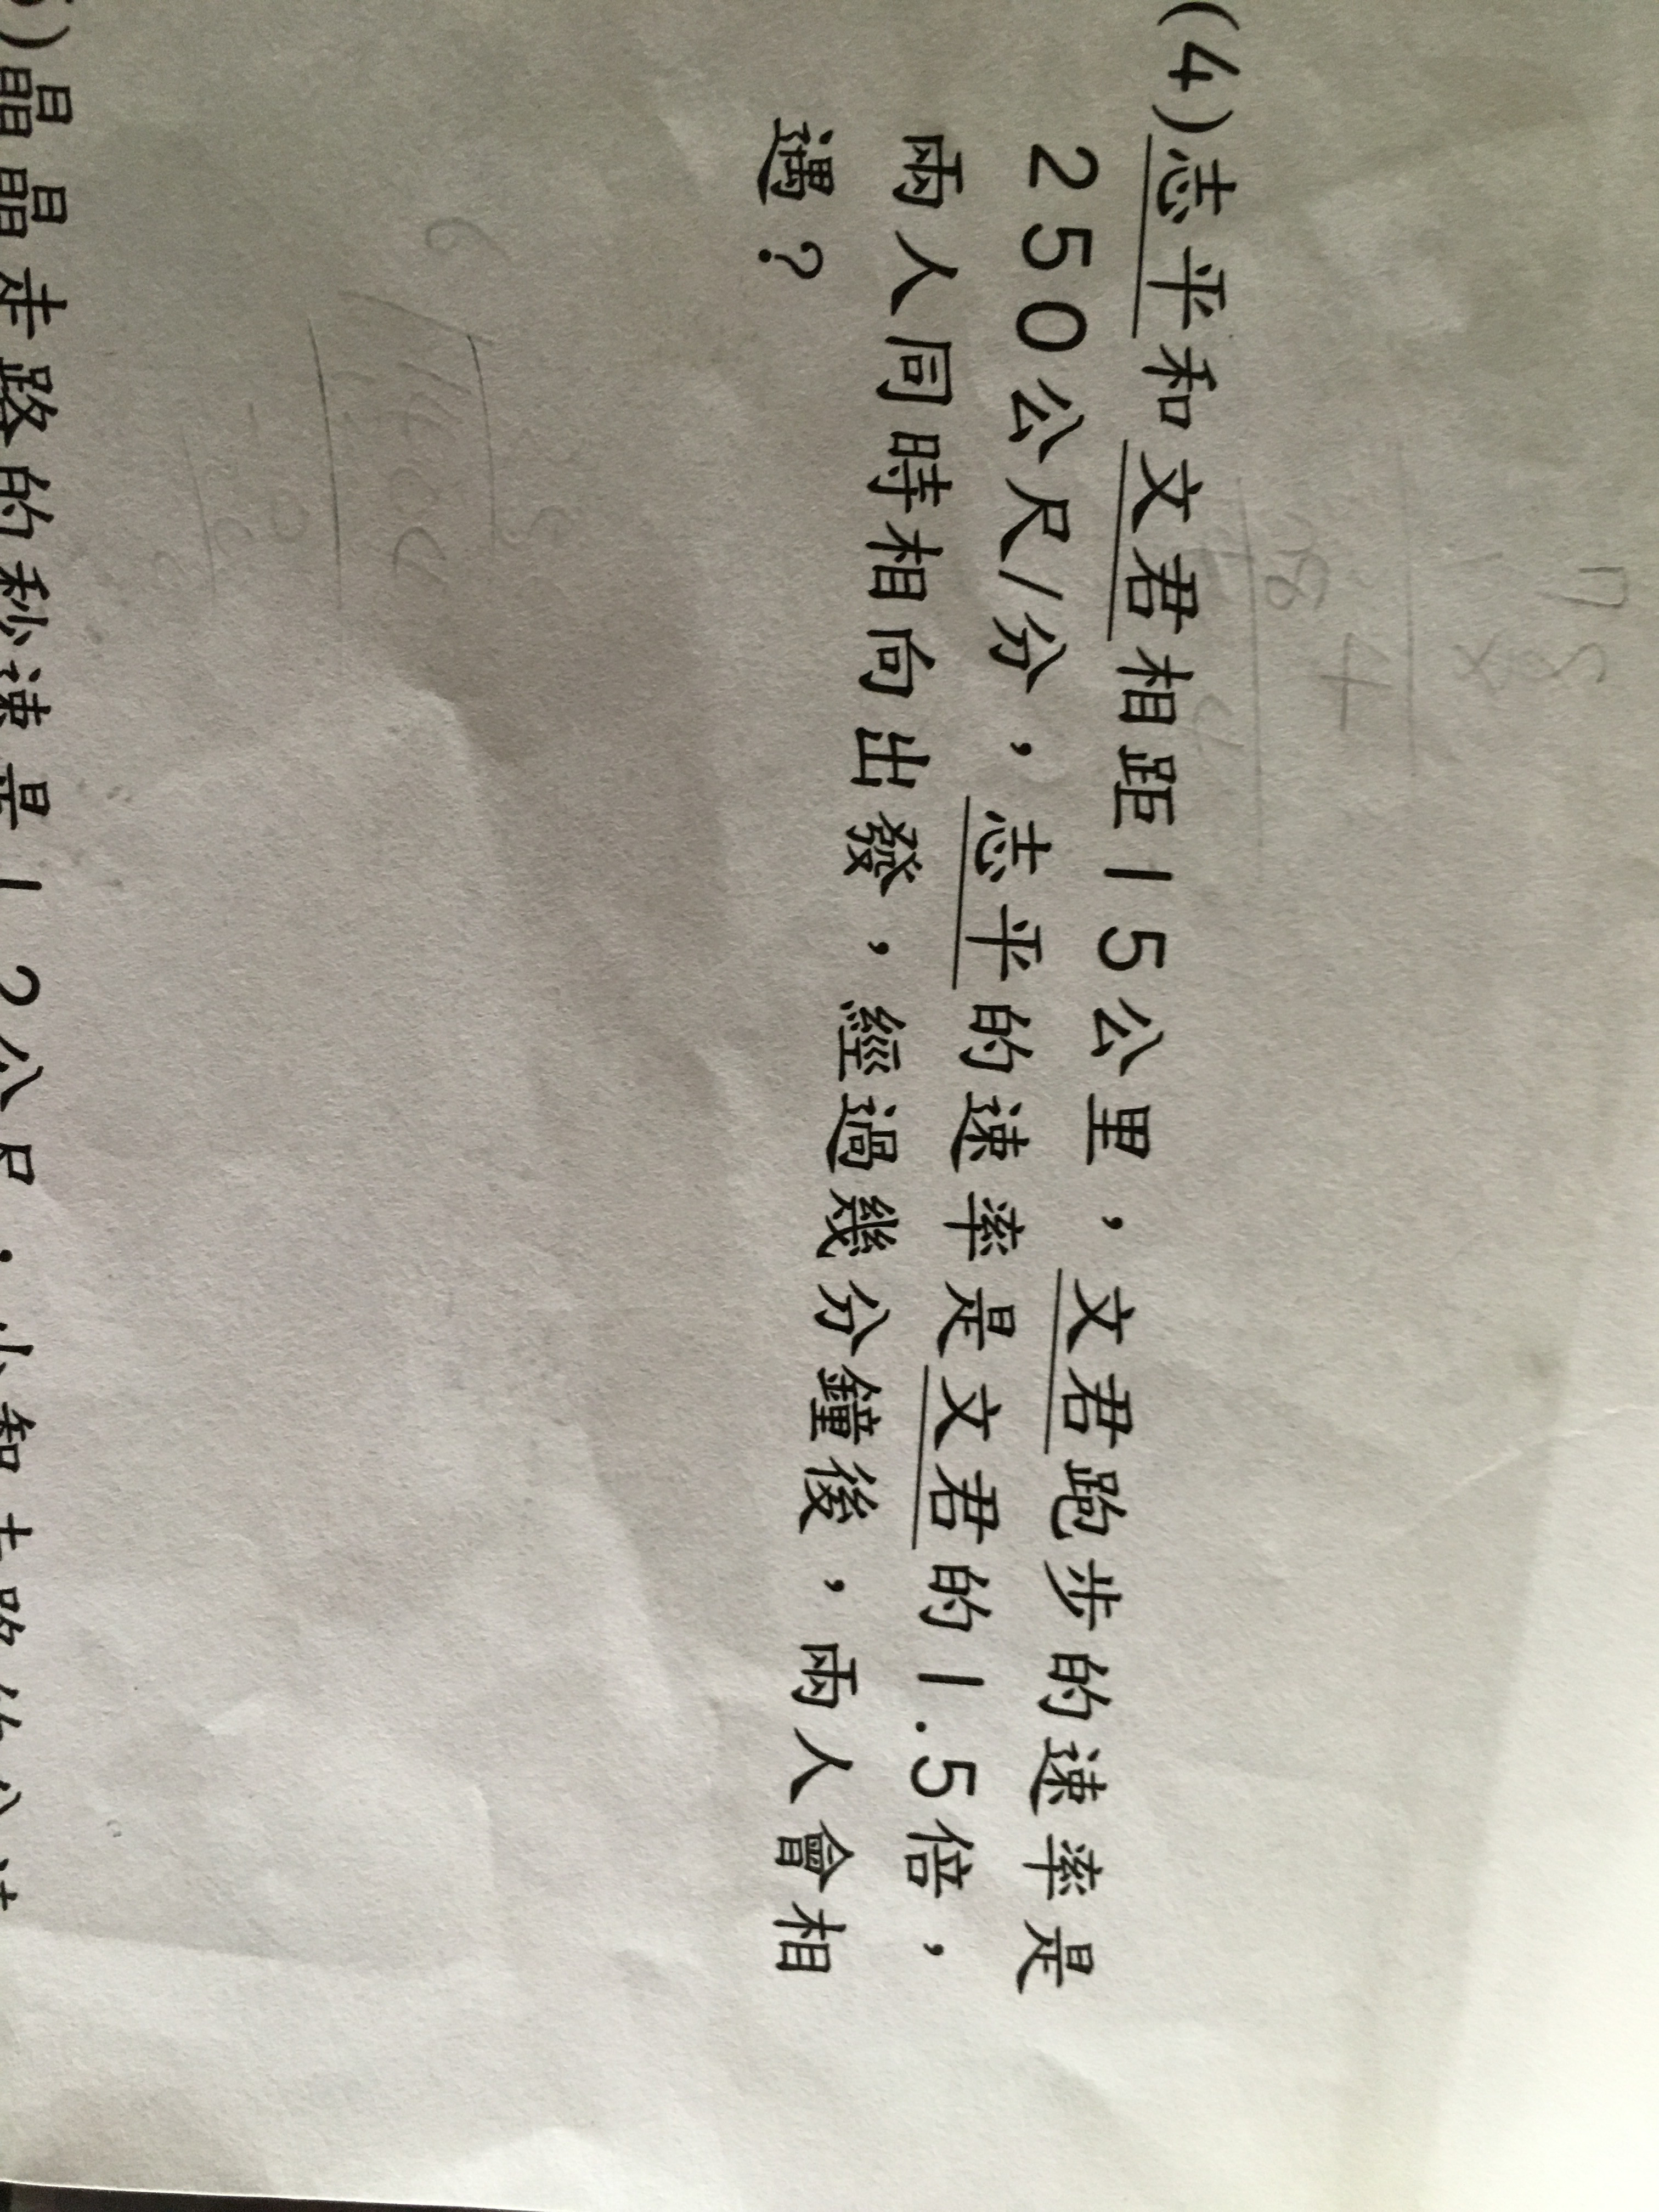 (4)志平和文君相距15公里，文君跑步的速率是
250公尺/分，志平的速率是文君的1.5倍，
兩人同時相向出發，經過幾分鐘後，兩人會相
遇？
)晶晶走路的秒速是1.2公尺，小智走路的分速